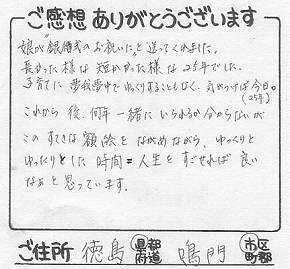 ご感想ありがとうございます
娘が"銀婚式のお祝いに"と送ってくれました。
長かった様な短かかった様な25年でした。
子育てに夢我夢中でゆっくりすることもなく、気がつけば今日。
(25年)
これから後、何年一緒にいられるか分からないが
このすてきな額絵をながめながら、ゆっくりと
ゆったりとした時間=人生をすごせれば良い
なぁと思っています。
ご住所 徳島 都道府県 鳴門 市区町郡